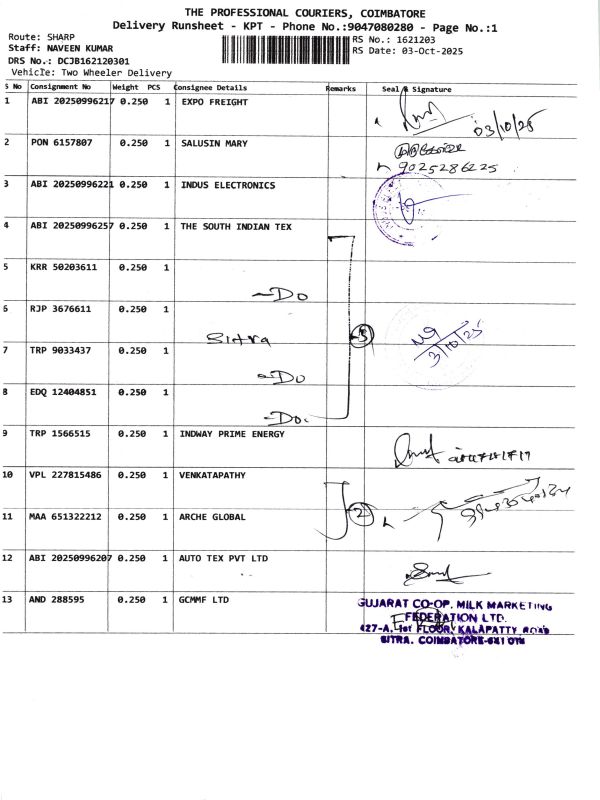 THE PROFESSIONAL COURIERS, COIMBATORE
Delivery Runsheet - KPT - Phone No.:9047080280 - Page No.:1
Route: SHARP
Staff: NAVEEN KUMAR
DRS No.: DCJB162120301
Vehicle: Two Wheeler Delivery
RS No.: 1621203
RS Date: 03-Oct-2025
S No Consignment No Weight PCS Consignee Details Remarks Seal & Signature
1 ABI 20250996217 0.250 1 EXPO FREIGHT 03/10/25
2 PON 6157807 0.250 1 SALUSIN MARY
9025286225
3 ABI 20250996221 0.250 1 INDUS ELECTRONICS
4 ABI 20250996257 0.250 1 THE SOUTH INDIAN TEX
5 KRR 50203611 0.250 1
-Do
6 RJP 3676611 0.250 1
Sitra 5
3/10/25
7 TRP 9033437 0.250 1
-Do
8 EDQ 12404851 0.250 1
-Do.
9 TRP 1566515 0.250 1 INDWAY PRIME ENERGY
10 VPL 227815486 0.250 1 VENKATAPATHY
2
11 MAA 651322212 0.250 1 ARCHE GLOBAL
12 ABI 20250996207 0.250 1 AUTO TEX PVT LTD
13 AND 288595 0.250 1 GCMMF LTD
GUJARAT CO-OP. MILK MARKETING
FEDERATION LTD.
427-A, 1st FLOOR, KALAPATTY ROAD
SITRA. COIMBATORE-641 014